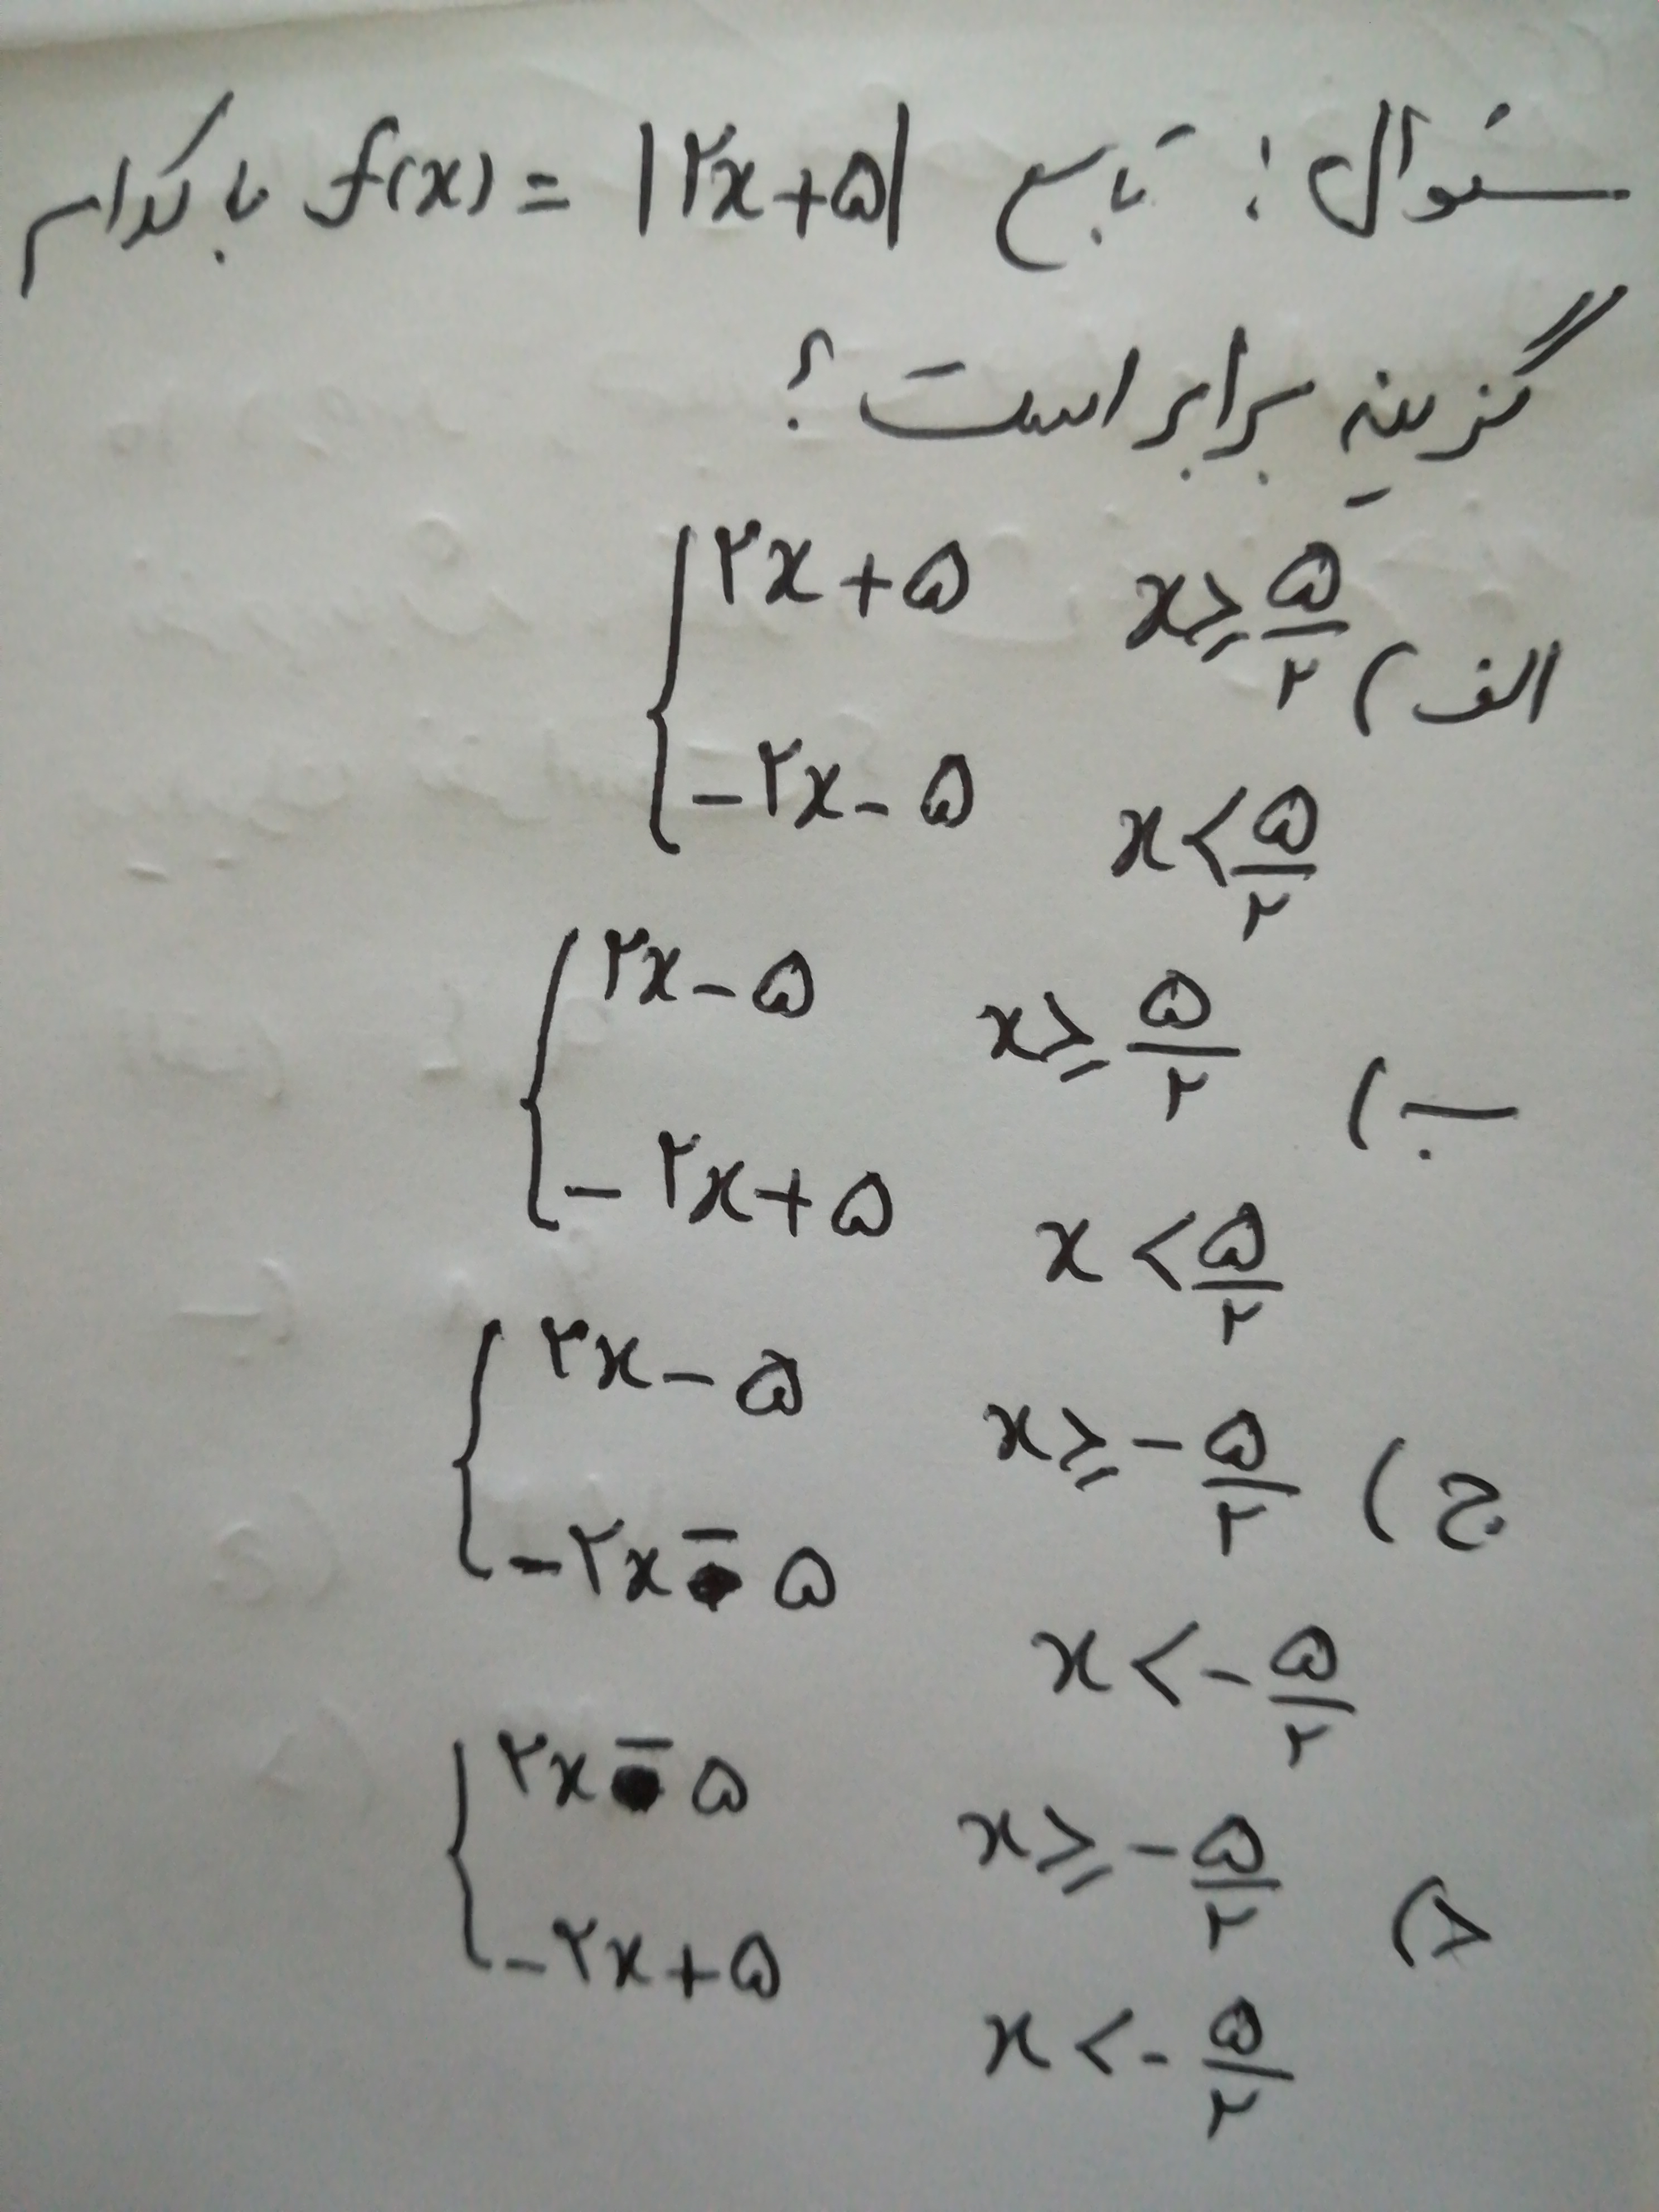 سئوال: تابع f(x) = |۲x+۵| با کدام
گزینه برابر است؟
الف) { ۲x+۵ x≥۵/۲
-۲x-۵ x<۵/۲
ب) { ۲x-۵ x≥۵/۲
-۲x+۵ x<۵/۲
ج) { ۲x-۵ x≥-۵/۲
-۲x-۵ x<-۵/۲
د) { ۲x-۵ x≥-۵/۲
-۲x+۵ x<-۵/۲